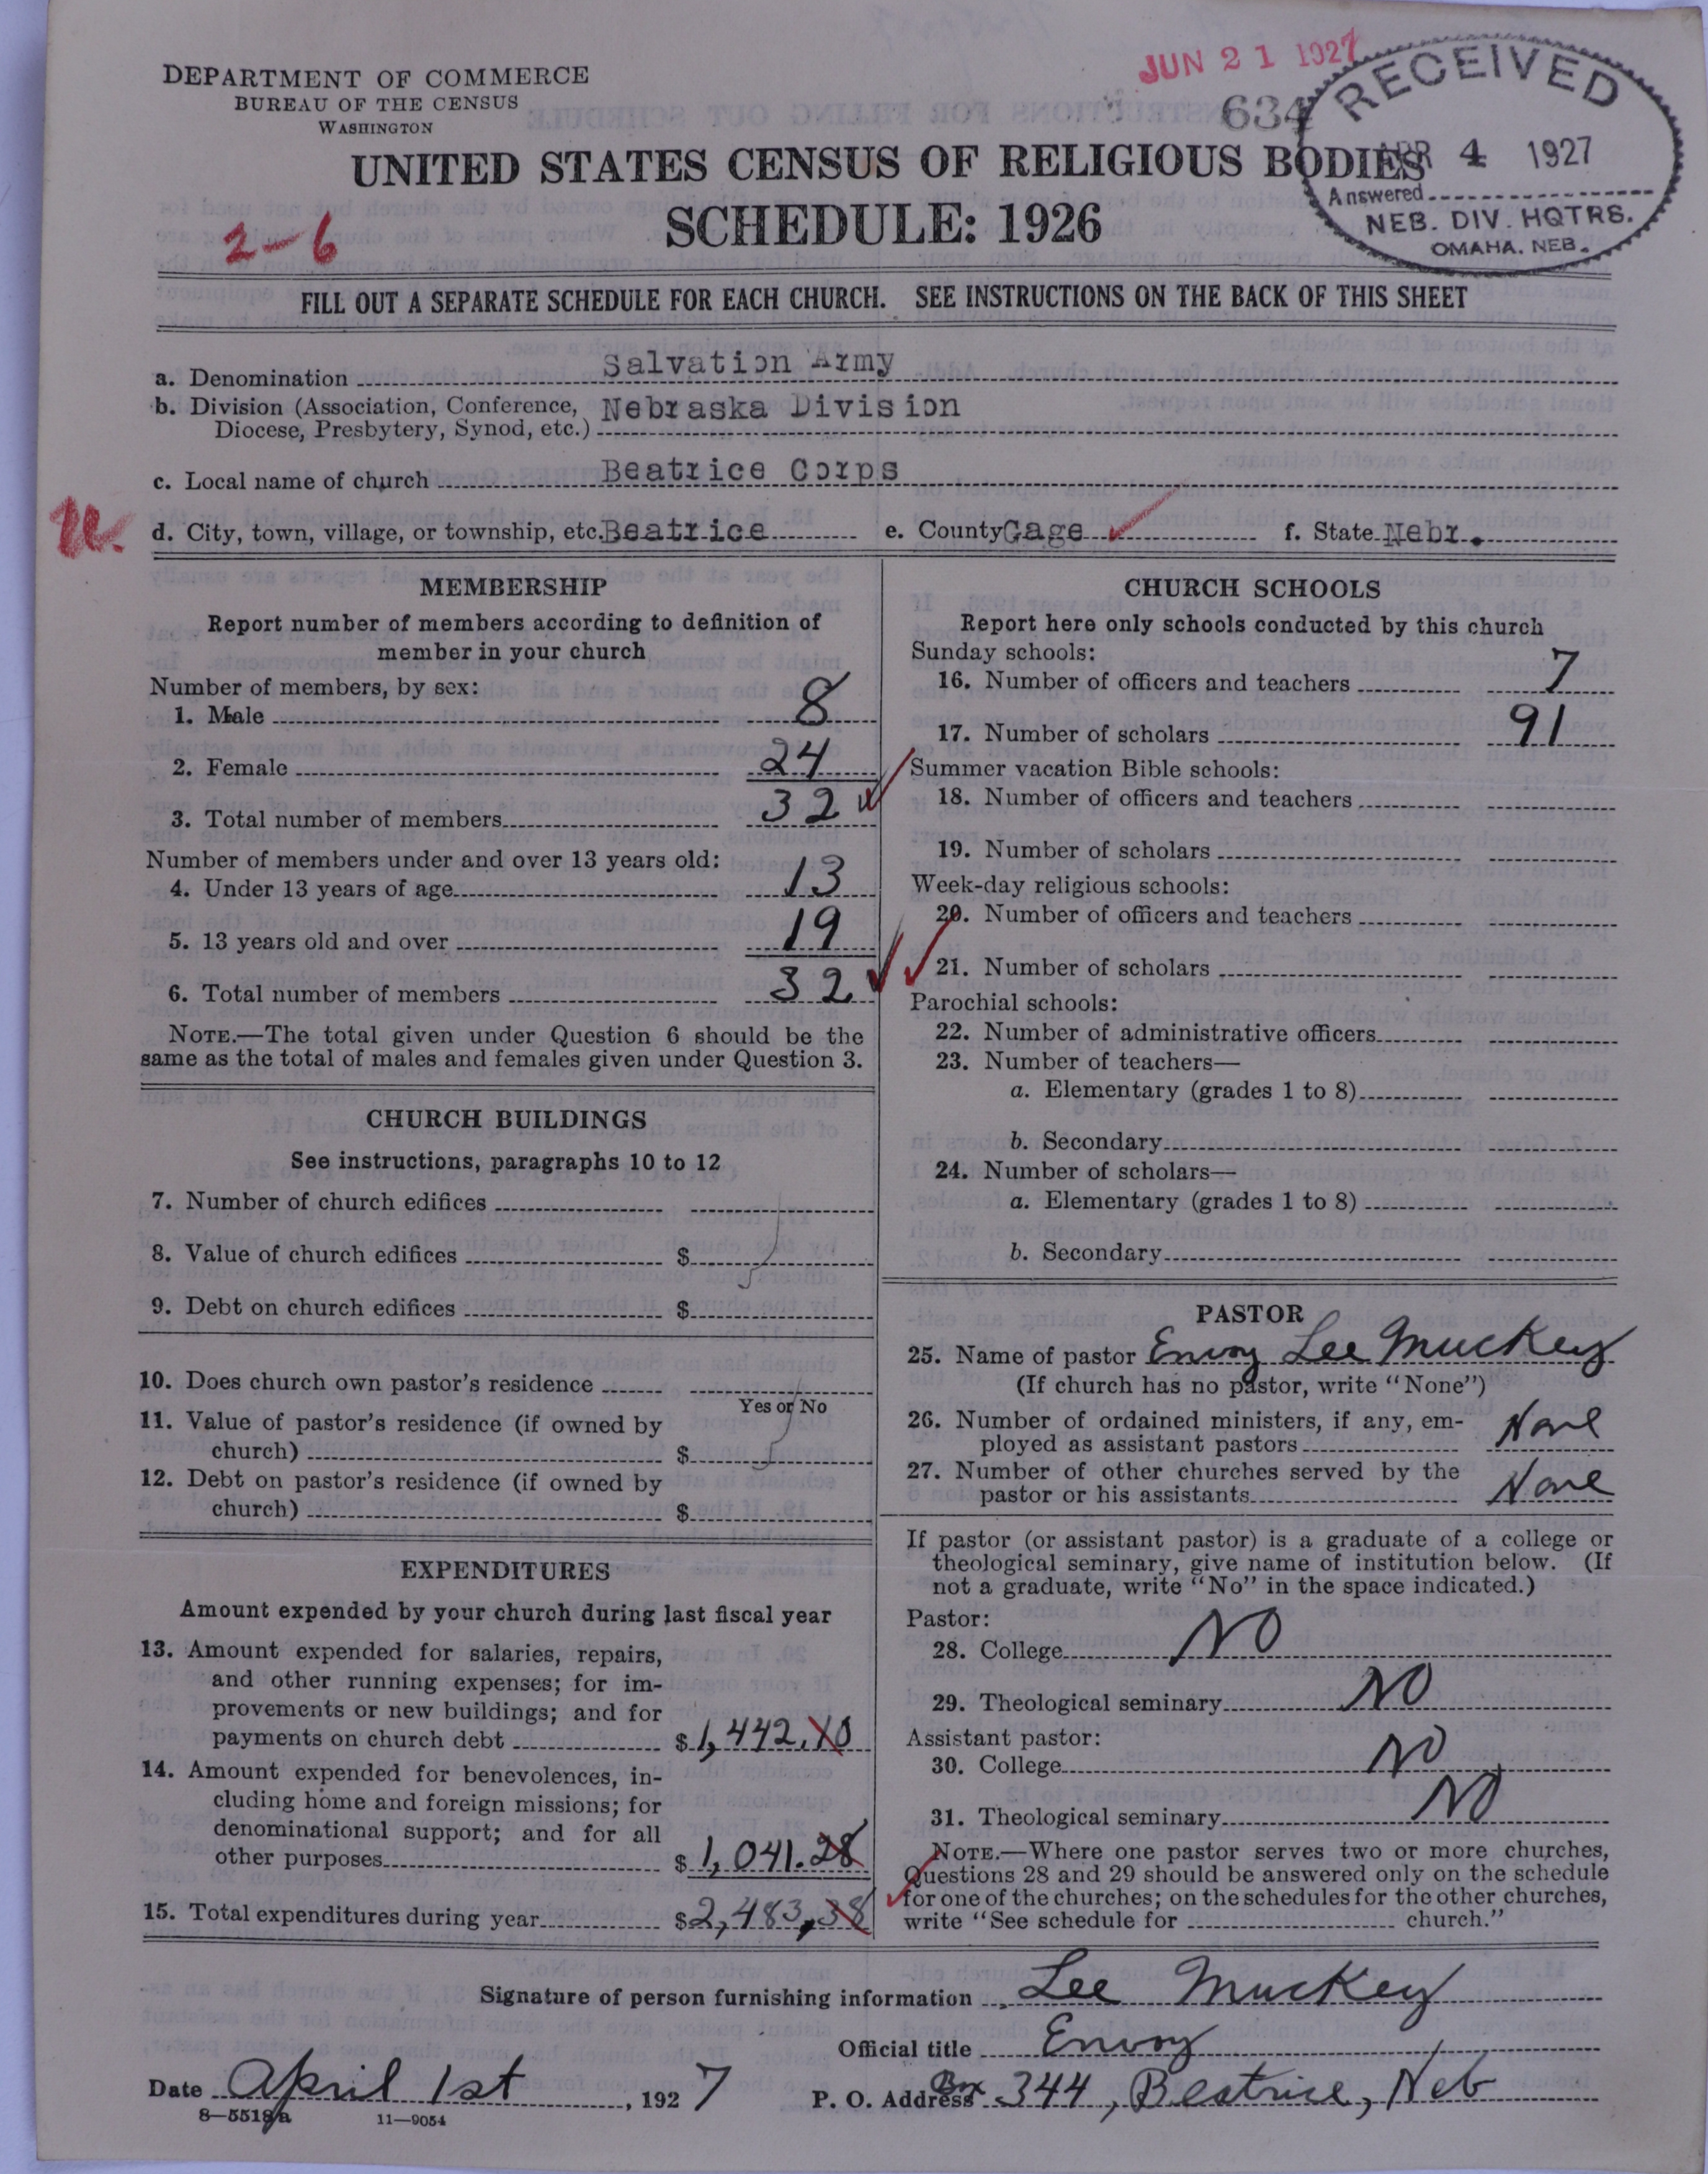 JUN 21 1927
634
RECEIVED
APR 4 1927
Answered
NEB. DIV. HQTRS.
OMAHA. NEB.
DEPARTMENT OF COMMERCE
BUREAU OF THE CENSUS
WASHINGTON
UNITED STATES CENSUS OF RELIGIOUS BODIES
SCHEDULE: 1926
2-6
FILL OUT A SEPARATE SCHEDULE FOR EACH CHURCH. SEE INSTRUCTIONS ON THE BACK OF THIS SHEET
a. Denomination Salvation Army
b. Division (Association, Conference, Nebraska Division
Diocese, Presbytery, Synod, etc.)
c. Local name of church Beatrice Corps
d. City, town, village, or township, etc. Beatrice e. County Gage f. State Nebr.
MEMBERSHIP
Report number of members according to definition of
member in your church
Number of members, by sex:
1. Male 8
2. Female 24
3. Total number of members 32
Number of members under and over 13 years old:
4. Under 13 years of age 13
5. 13 years old and over 19
6. Total number of members 32
NOTE.—The total given under Question 6 should be the
same as the total of males and females given under Question 3.
CHURCH BUILDINGS
See instructions, paragraphs 10 to 12
7. Number of church edifices
8. Value of church edifices $
9. Debt on church edifices $
10. Does church own pastor's residence
Yes or No
11. Value of pastor's residence (if owned by
church) $
12. Debt on pastor's residence (if owned by
church) $
EXPENDITURES
Amount expended by your church during last fiscal year
13. Amount expended for salaries, repairs,
and other running expenses; for im-
provements or new buildings; and for
payments on church debt $1,442.10
14. Amount expended for benevolences, in-
cluding home and foreign missions; for
denominational support; and for all
other purposes $1,041.28
15. Total expenditures during year $2,483.38
CHURCH SCHOOLS
Report here only schools conducted by this church
Sunday schools:
16. Number of officers and teachers 7
17. Number of scholars 91
Summer vacation Bible schools:
18. Number of officers and teachers
19. Number of scholars
Week-day religious schools:
20. Number of officers and teachers
21. Number of scholars
Parochial schools:
22. Number of administrative officers
23. Number of teachers—
a. Elementary (grades 1 to 8)
b. Secondary
24. Number of scholars—
a. Elementary (grades 1 to 8)
b. Secondary
PASTOR
25. Name of pastor Envoy Lee Muckey
(If church has no pastor, write "None")
26. Number of ordained ministers, if any, em-
ployed as assistant pastors None
27. Number of other churches served by the
pastor or his assistants None
If pastor (or assistant pastor) is a graduate of a college or
theological seminary, give name of institution below. (If
not a graduate, write "No" in the space indicated.)
Pastor:
28. College NO
29. Theological seminary NO
Assistant pastor:
30. College NO
31. Theological seminary NO
NOTE.—Where one pastor serves two or more churches,
Questions 28 and 29 should be answered only on the schedule
for one of the churches; on the schedules for the other churches,
write "See schedule for church."
Signature of person furnishing information Lee Muckey
Official title Envoy
Date April 1st, 1927 P. O. Address Box 344, Beatrice, Neb
8—5518a 11—9054